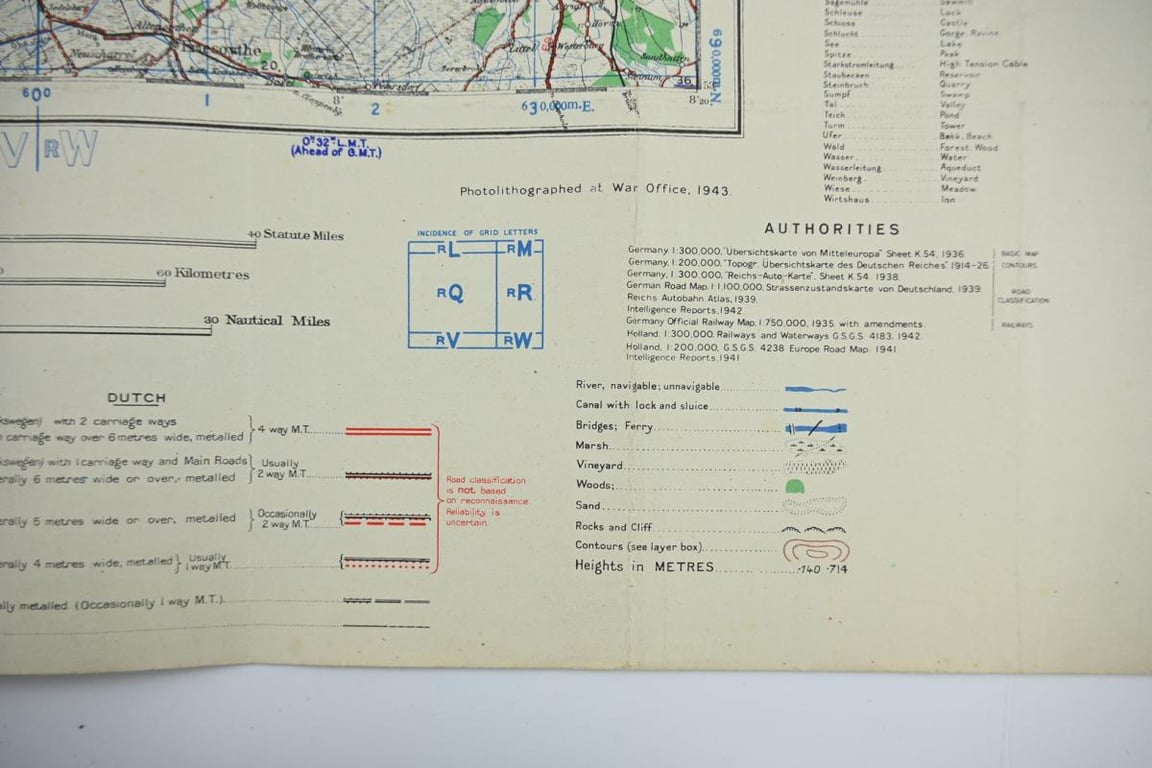 Neuscharrel
20
Sandhatten
36
53°
8'
8°20'
60⁰
1
2
63 0,000m.E.
690,000m.N.
V RW
0ʰ32ᵐL.M.T.
(Ahead of G.M.T.)
Schleuse Lock
Schloss Castle
Schlucht Gorge. Ravine
See Lake
Spitze Peak
Starkstromleitung High Tension Cable
Staubecken Reservoir
Steinbruch Quarry
Sumpf Swamp
Tal Valley
Teich Pond
Turm Tower
Ufer Bank. Beach
Wald Forest. Wood
Wasser Water
Wasserleitung Aqueduct
Weinberg Vineyard
Wiese Meadow
Wirtshaus Inn
Photolithographed at War Office, 1943.
40 Statute Miles
60 Kilometres
30 Nautical Miles
INCIDENCE OF GRID LETTERS
RL RM
RQ RR
RV RW
AUTHORITIES
Germany, 1:300,000, "Übersichtskarte von Mitteleuropa" Sheet K 54, 1936
Germany, 1:200,000, "Topogr. Übersichtskarte des Deutschen Reiches" 1914-26.
Germany, 1:300,000, "Reichs-Auto-Karte", Sheet K 54. 1938
German Road Map, 1:1,100,000, Strassenzustandskarte von Deutschland, 1939.
Reichs Autobahn Atlas, 1939.
Intelligence Reports, 1942
Germany Official Railway Map, 1:750,000, 1935. with amendments.
Holland, 1:300,000, Railways and Waterways G.S.G.S. 4183, 1942.
Holland, 1:200,000, G.S.G.S. 4238 Europe Road Map. 1941
Intelligence Reports, 1941
BASIC MAP
CONTOURS
ROAD
CLASSIFICATION
RAILWAYS
DUTCH
with 2 carriage ways
carriage way over 6 metres wide, metalled
4 way M.T.
with 1 carriage way and Main Roads
6 metres wide or over, metalled
Usually
2 way M.T.
5 metres wide or over, metalled
Occasionally
2 way M.T.
4 metres wide, metalled
Usually
1 way M.T.
metalled. (Occasionally 1 way M.T.)
Road classification
is not based
on reconnaissance.
Reliability is
uncertain.
River, navigable; unnavigable
Canal with lock and sluice
Bridges; Ferry
Marsh
Vineyard
Woods;
Sand
Rocks and Cliff
Contours (see layer box)
Heights in METRES ·140 ·714